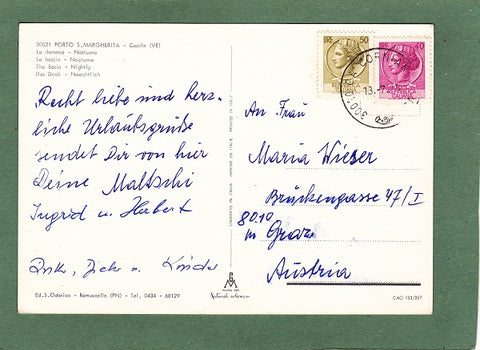 30021 PORTO S. MARGHERITA - Caorle (VE)
La darsena - Notturno
Le bassin - Nocturne
The Basin - Nightly
Das Dock - Naechtlich
Recht liebe und herz-
liche Urlaubsgrüße
sendet Dir von hier
Deine Maltschi
Ingrid u. Herbert
u. Kinder
Ed. S. Odorico - Ramuscello (PN) - Tel. 0434 - 68129
PRINTED IN ITALY
IMPRIMÉ EN ITALIE
STAMPATO IN ITALIA
50
An Frau
Maria Wieser
Brückengasse 47/I
8010
in Graz
Austria
CAO 153/237